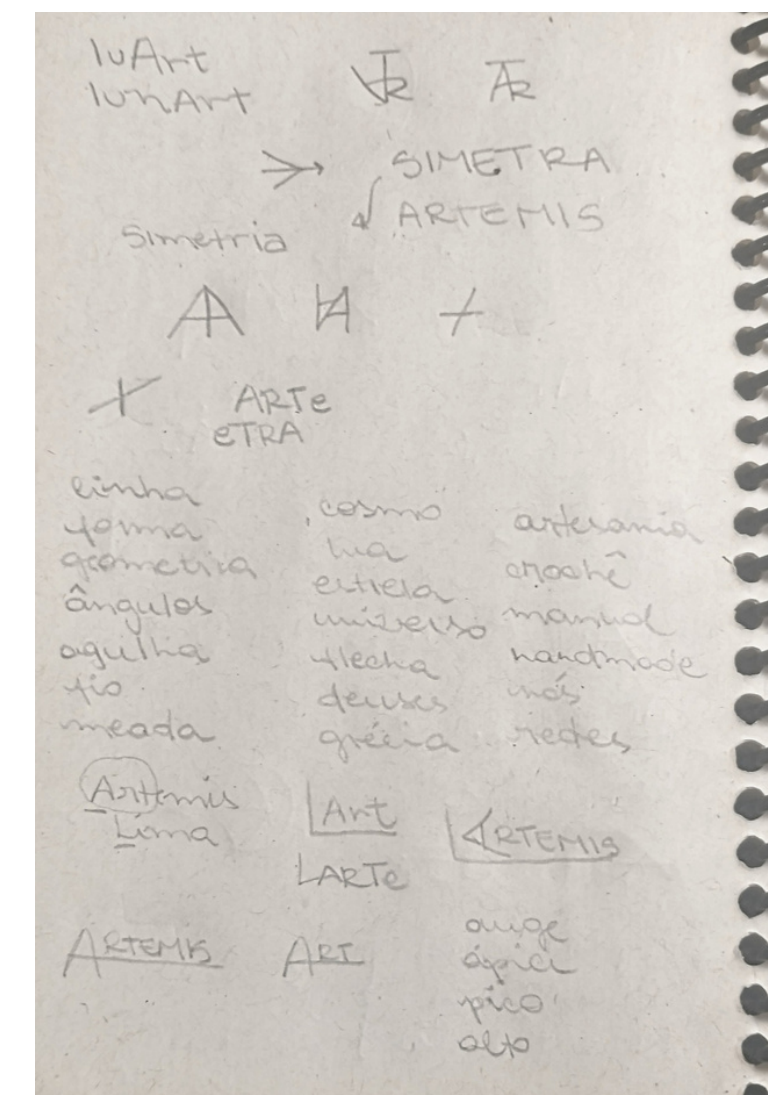 luArt
lunArt
SIMETRA
ARTEMIS
simetria
ARTe
eTRA
linha
forma
geometrica
ângulos
agulha
fio
meada
cosmo
lua
estrela
universo
flecha
deuses
grécia
artesania
crochê
manual
handmade
nós
redes
Artemis
Lima
Art
LARTe
ARTEMIS
ARTEMIS
ART
auge
ápici
pico
alto